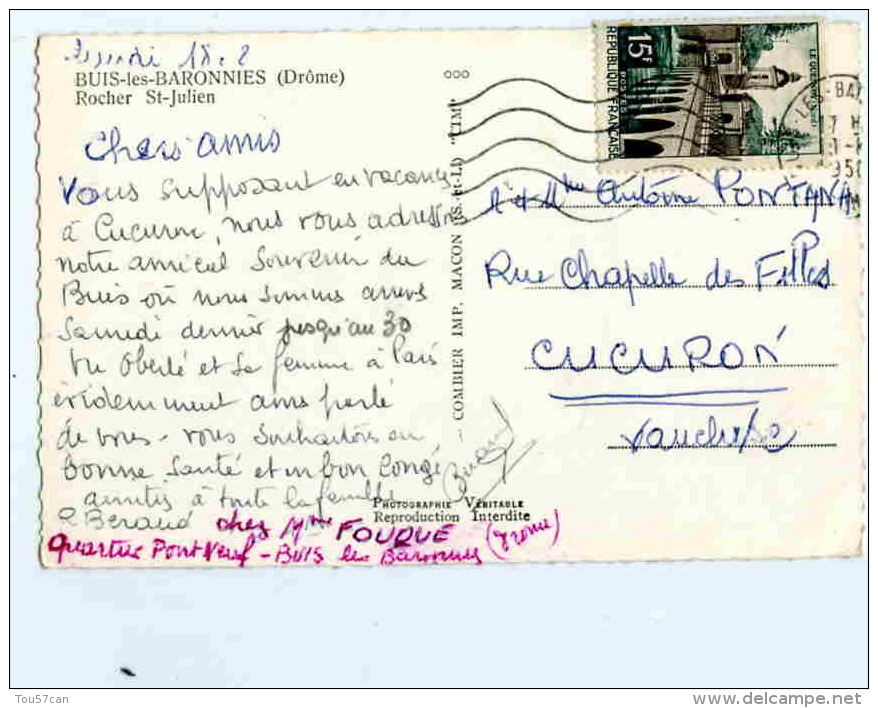 lundi 18.8
BUIS-les-BARONNIES (Drôme)
Rocher St-Julien
Chers amis
Vous supposant en vacances
à Cucuron, nous vous adressons
notre amical souvenir du
Buis où nous sommes arrivés
Samedi dernier jusqu'au 30
Vu Oberlé et sa femme à Paris
évidemment avons parlé
de vous - vous souhaitons en
bonne Santé et en bon congé
amitiés à toute la famille
Beraud
chez Mme FOUQUE (Drome)
Quartier Pont Neuf - BUIS les Baronnies
COMBIER IMP. MACON (S.-et-L.) "CIM"
PHOTOGRAPHIE VÉRITABLE
Reproduction Interdite
Beraud
15F
REPUBLIQUE FRANÇAISE
POSTES
LE QUESNOY
Mr & Mme Antoine PONTANA
Rue Chapelle des Filles
CUCURON
Vaucluse
Tou57can
www.delcampe.net